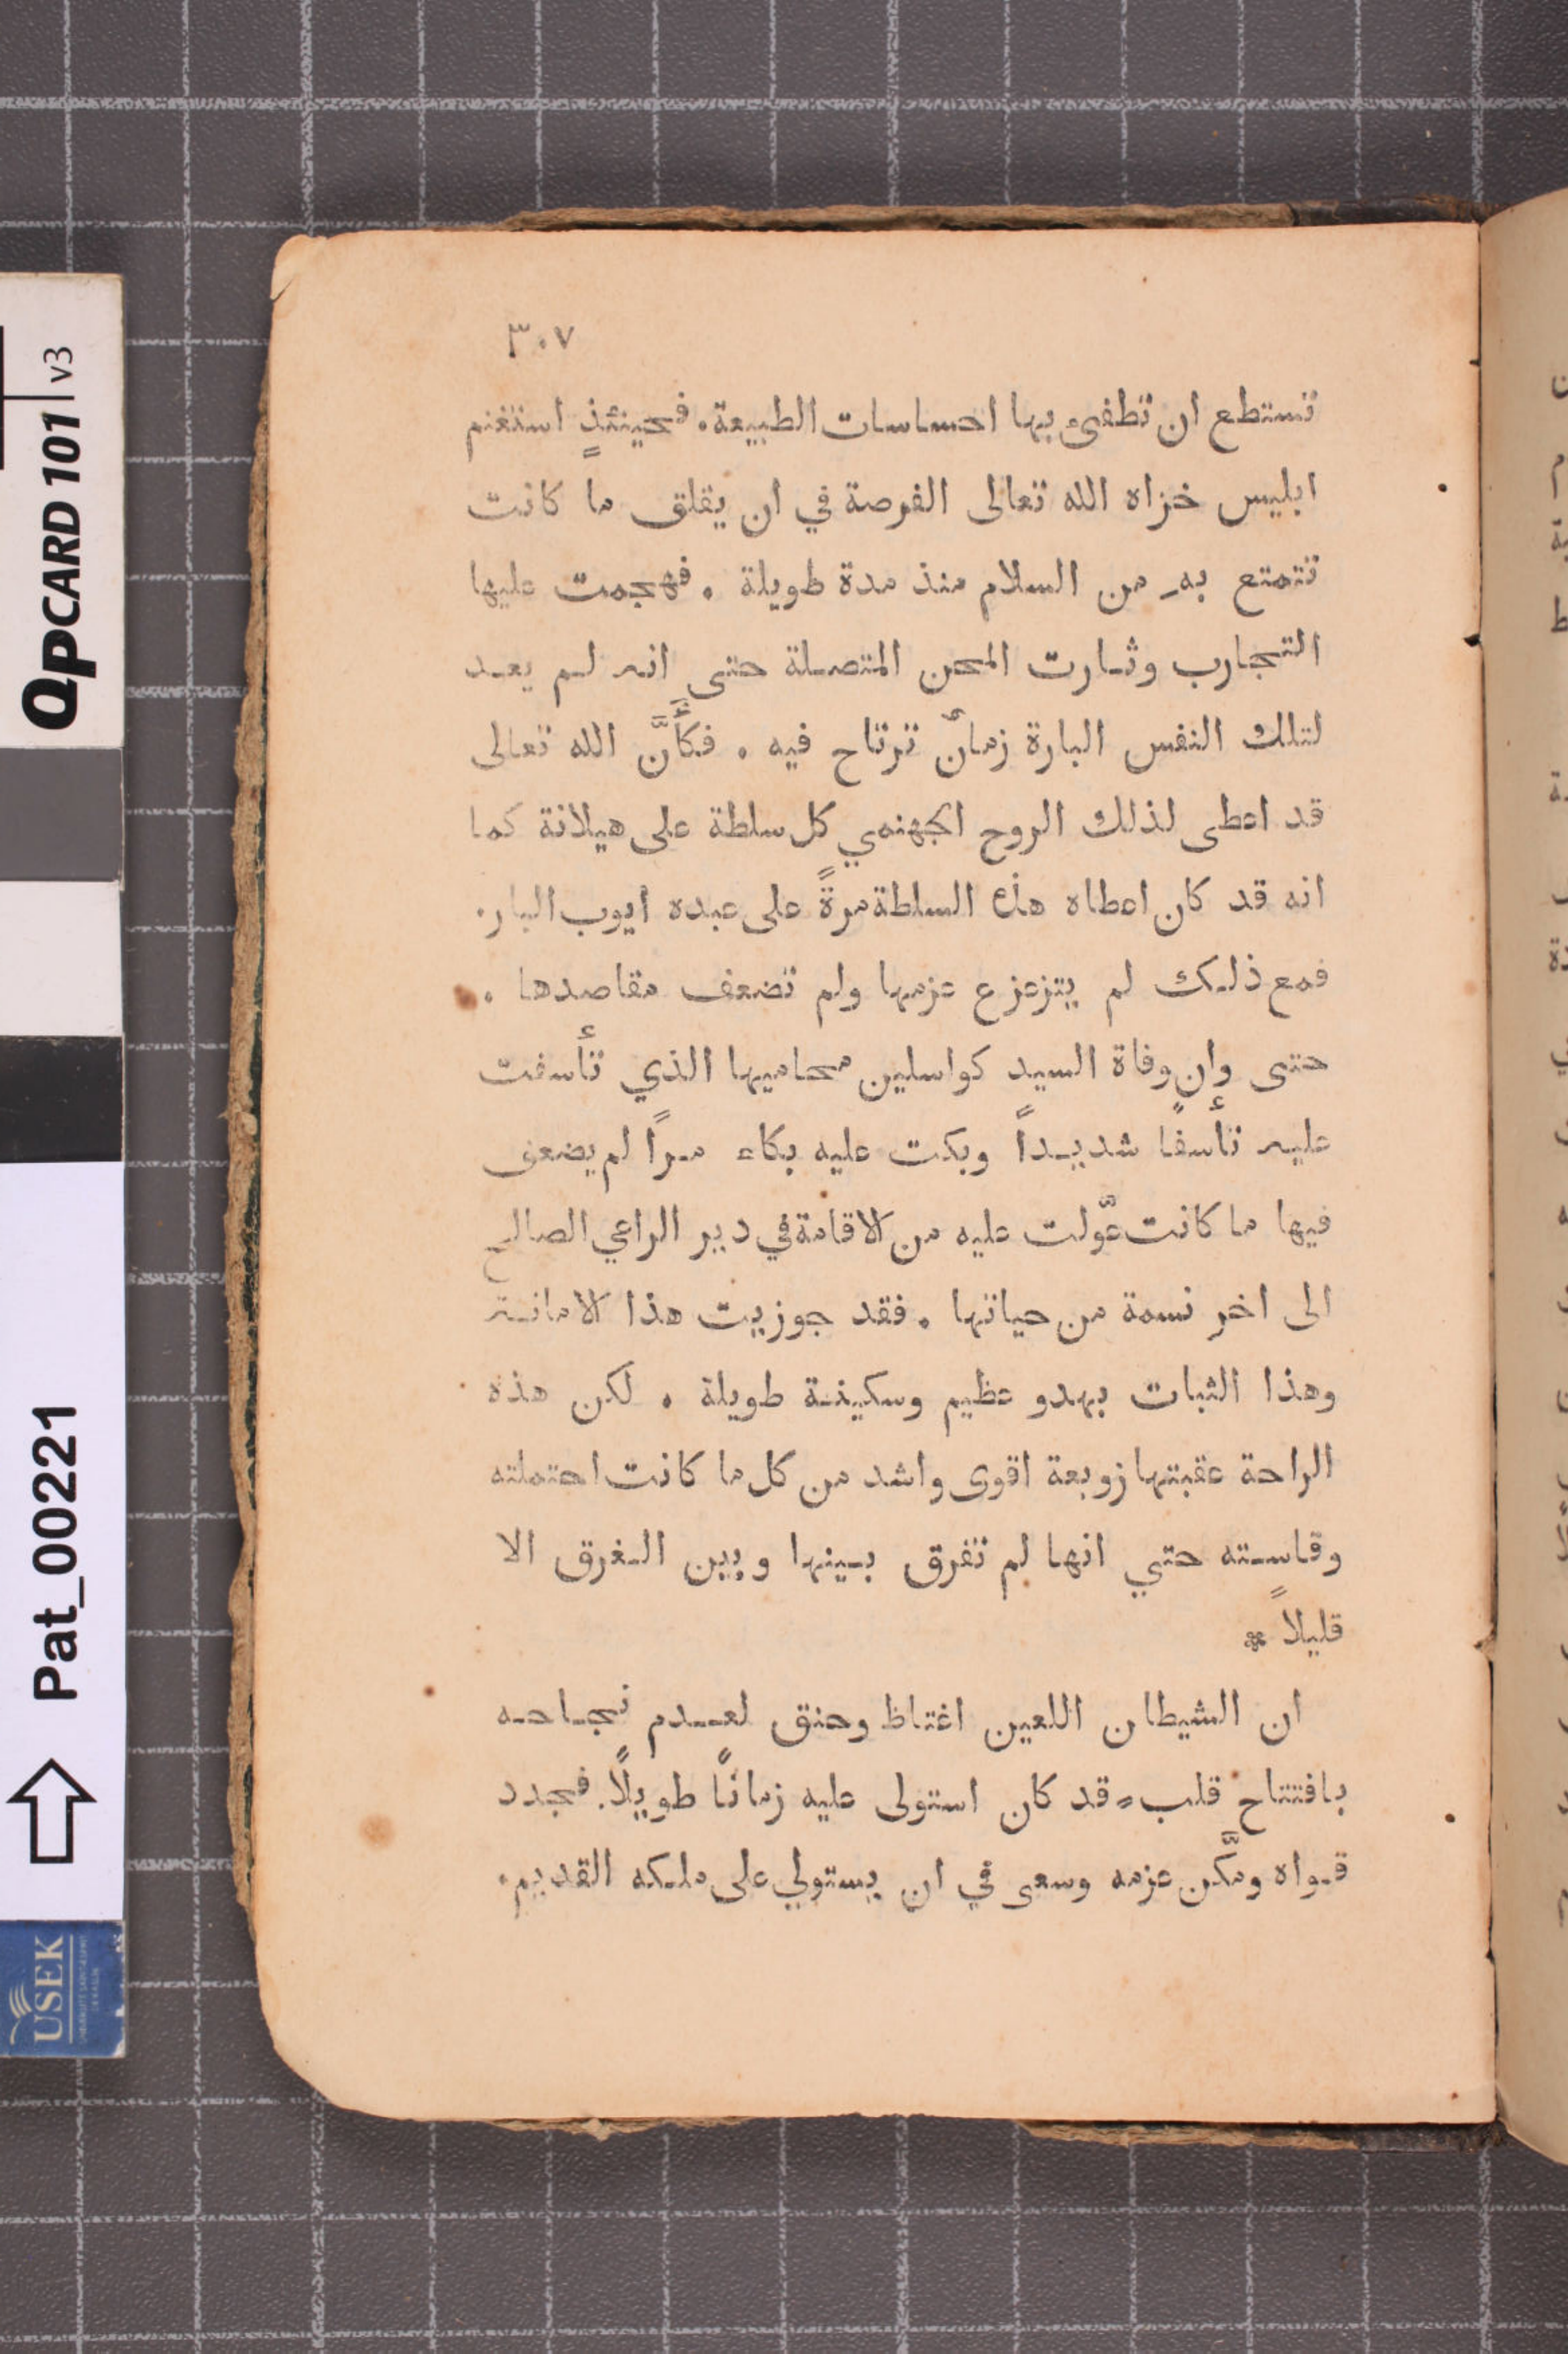 ٣٠٧
تستطع ان تطفىء بها احساسات الطبيعة. فحينئذٍ استغنم
ابليس خزاه الله تعالى الفرصة في ان يقلق ما كانت
تتمتع به من السلام منذ مدة طويلة . فهجمت عليها
التجارب وثارت المحن المتصلة حتى انه لم يعد
لتلك النفس البارة زمانٌ ترتاح فيه . فكأَنَّ الله تعالى
قد اعطى لذلك الروح الجهنمي كل سلطة على هيلانة كما
انه قد كان اعطاه هذه السلطة مرةً على عبده ايوب البار.
فمع ذلك لم يتزعزع عزمها ولم تضعف مقاصدها .
حتى وان وفاة السيد كواسلين محاميها الذي تأسفت
عليه تأسفًا شديداً وبكت عليه بكاء مراً لم يضعف
فيها ما كانت عوّلت عليه من الاقامة في دير الراعي الصالح
الى اخر نسمة من حياتها . فقد جوزيت هذا الامانة
وهذا الثبات بهدو عظيم وسكينة طويلة . لكن هذه
الراحة عقبتها زوبعة اقوى واشد من كل ما كانت احتملته
وقاسته حتي انها لم تفرق بينها وبين الغرق الا
قليلاً *
ان الشيطان اللعين اغتاظ وحنق لعدم نجاحه
بافتتاح قلبٍ قد كان استولى عليه زمانًا طويلًا. فجدد
قواه ومكّن عزمه وسعى في ان يستولي على ملكه القديم.
QPCARD 101 v3
Pat_00221
USEK